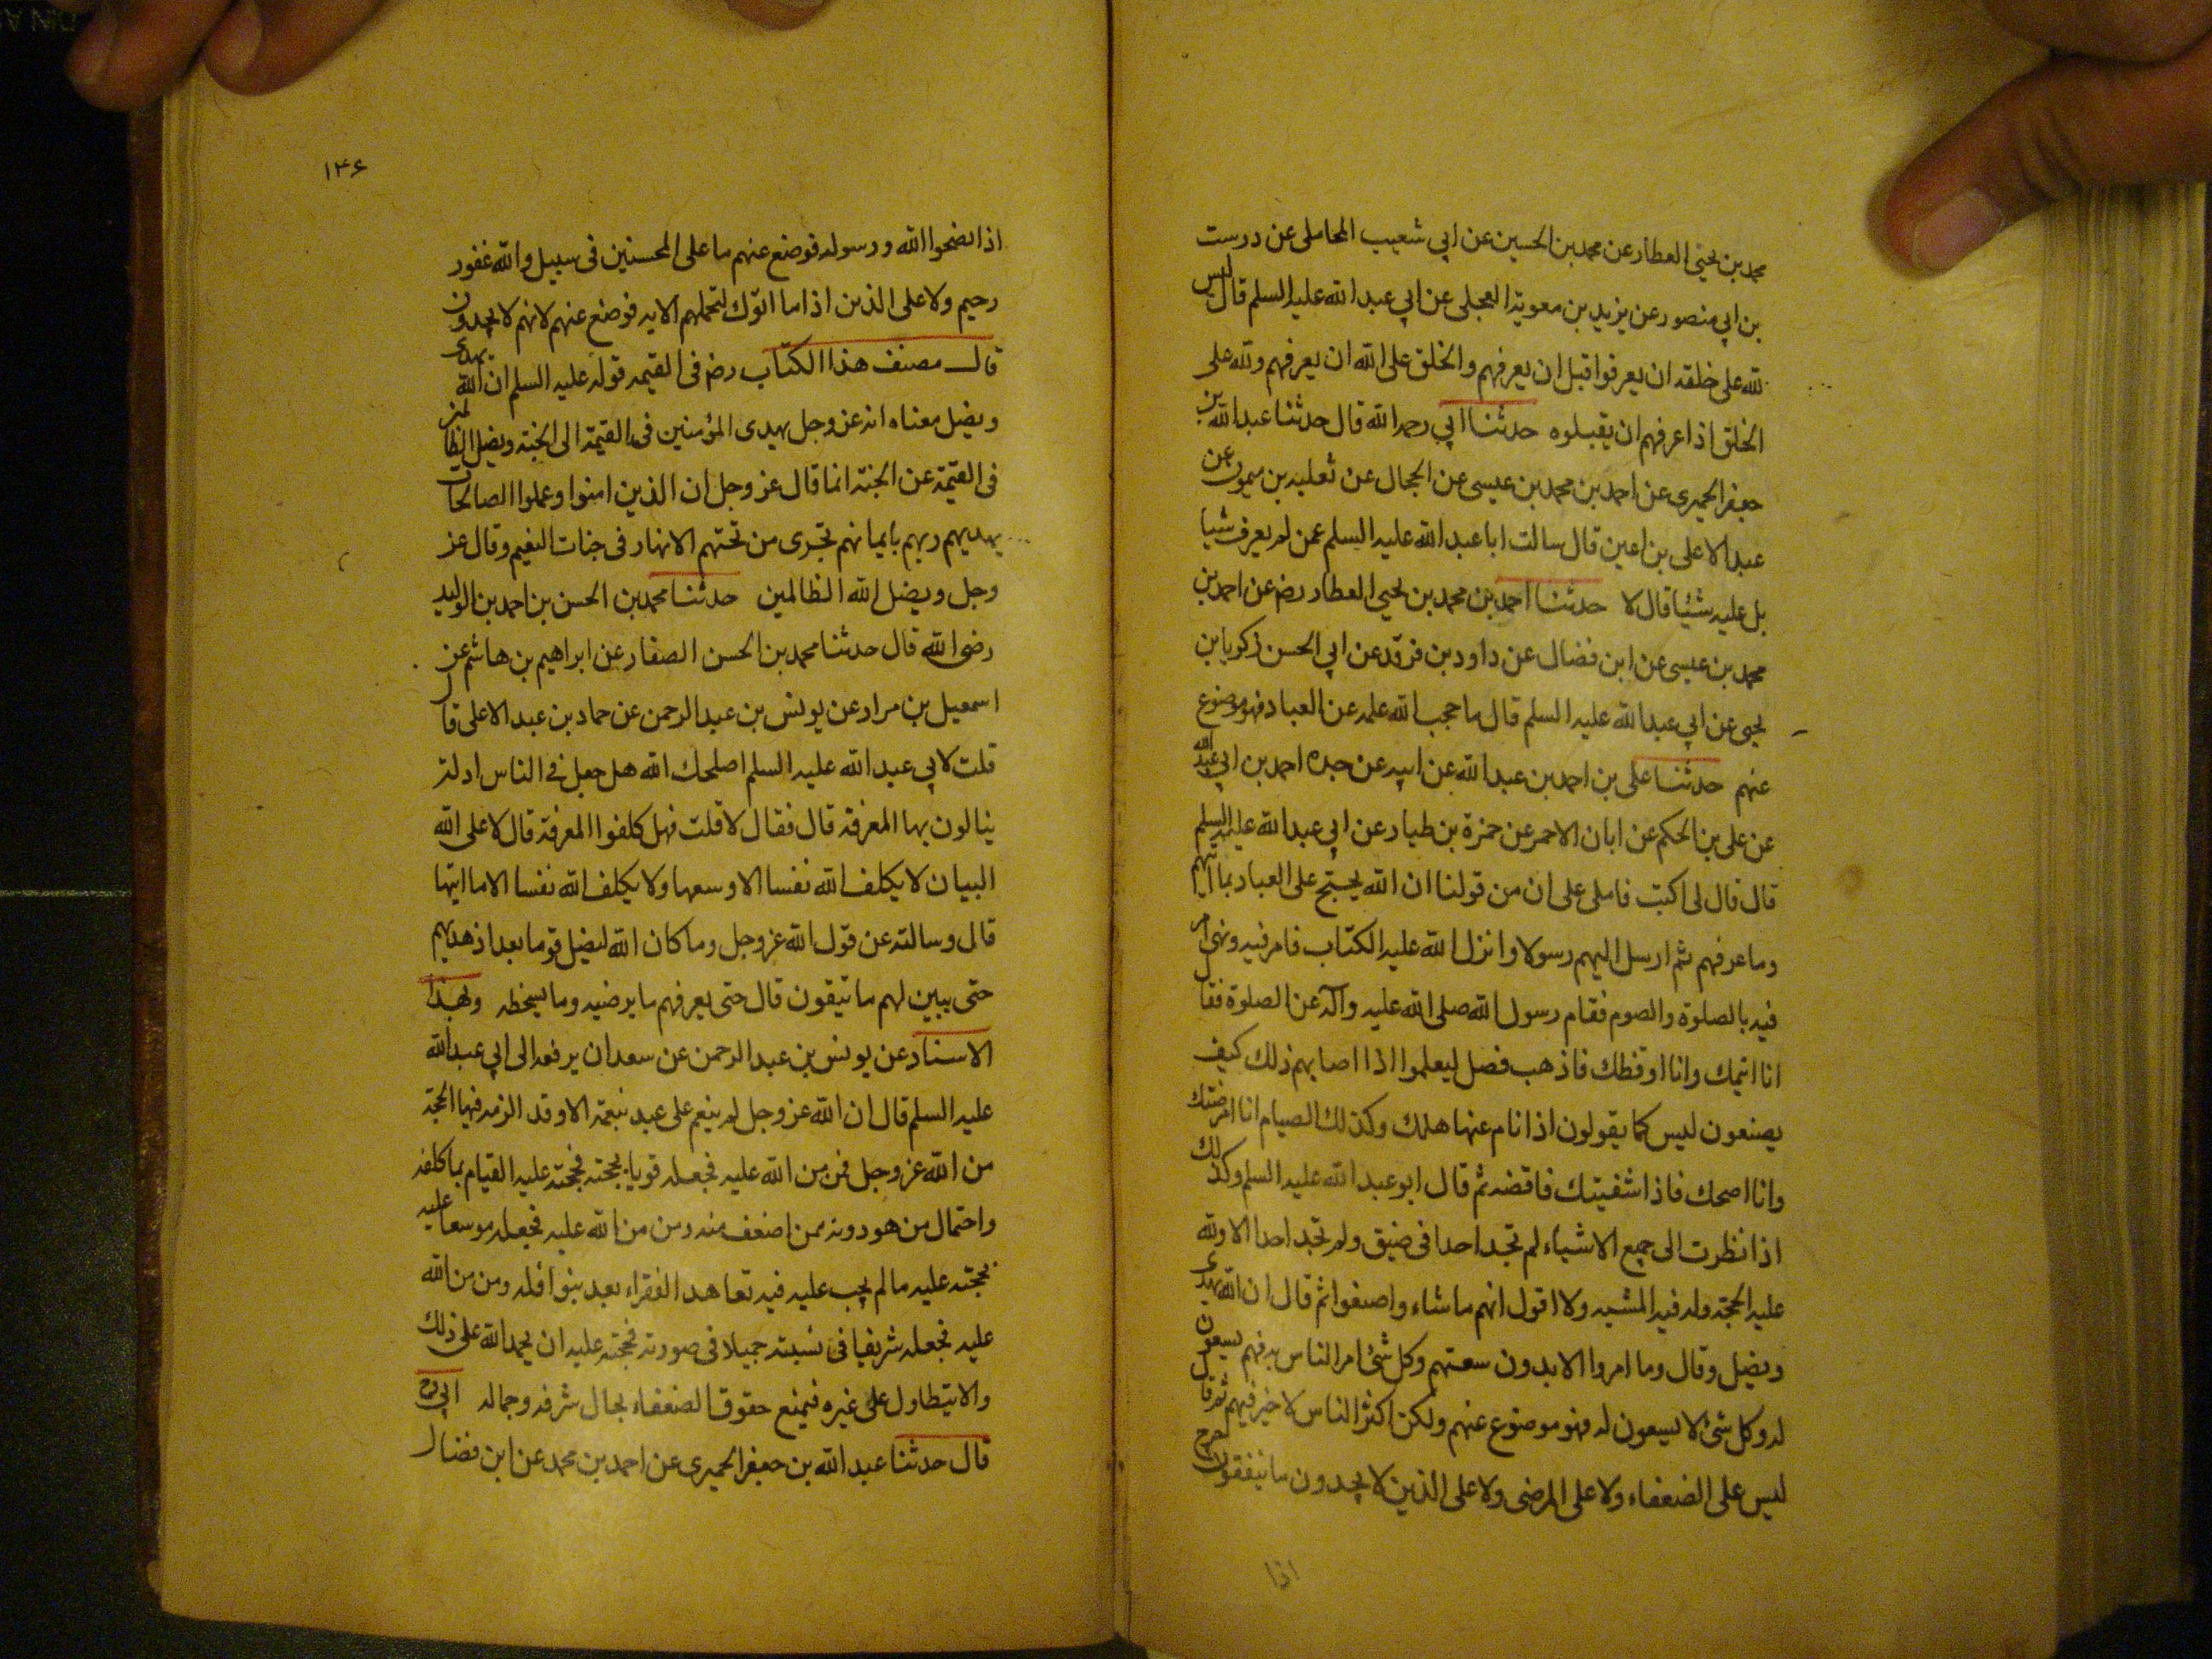 محمد بن يحيى العطار عن محمد بن الحسين عن ابي شعيب المحاملى عن درست
بن ابي منصور عن يزيد بن معوية العجلى عن ابي عبد الله عليه السلم قال ليس
لله على خلقه ان يعرفوا قبل ان يعرفهم والخلق على الله ان يعرفهم ولله على
الخلق اذا عرفهم ان يقبلوه حدثنا ابي رحمه الله قال حدثنا عبد الله بن
جعفر الحميرى عن احمد بن محمد بن عيسى عن الحجال عن ثعلبه بن ميمون عن
عبد الاعلى بن اعين قال سالت ابا عبد الله عليه السلم عمن لم يعرف شيا
بل عليه شيئا قال لا حدثنا احمد بن محمد بن يحيى العطار رض عن احمد بن
محمد بن عيسى عن ابن فضال عن داود بن فرقد عن ابي الحسن زكريا بن
يحيى عن ابي عبد الله عليه السلم قال ما حجب الله علمه عن العباد فهو موضوع
عنهم حدثنا على بن احمد بن عبد الله عن ابيه عن جده احمد بن ابي عبد الله
عن على بن الحكم عن ابان الاحمر عن حمزة بن طيار عن ابي عبد الله عليه السلم
قال قال لى اكتب فاملى على ان من قولنا ان الله يحتج على العباد بما آتيهم
وما عرفهم ثم ارسل اليهم رسولا وانزل الله عليه الكتاب فامر فيه ونهى امر
فيه بالصلوة والصوم فقام رسول الله صلى الله عليه وآله عن الصلوة فقال
انا انيمك وانا اوقظك فاذهب فصل ليعلموا اذا اصابهم ذلك كيف
يصنعون ليس كما يقولون اذا نام عنها هلك وكذلك الصيام انا امرضتك
وانا اصحك فاذا شفيتك فاقضه ثم قال ابو عبد الله عليه السلم وكذلك
اذا نظرت الى جميع الاشياء لم تجد احدا فى ضيق ولم تجد احدا الا ولله
عليه الحجة وله فيه المشيه ولا اقول انهم ما شاء واصنعوا ثم قال ان الله يهدى
ويضل وقال وما امروا الا بدون سعتهم وكل شئ امر الناس به فهم يسعون
له وكل شئ لا يسعون له فهو موضوع عنهم ولكن اكثر الناس لا خير فيهم ثم قال
ليس على الضعفاء ولا على المرضى ولا على الذين لا يجدون ما ينفقون حرج
اذا
۱۴۶
اذا نصحوا الله ورسوله فوضع عنهم ما على المحسنين فى سبيل والله غفور
رحيم ولا على الذين اذا ما اتوك لتحملهم الايه فوضع عنهم لانهم لا يجدون
قال مصنف هذا الكتاب رض فى القيمه قوله عليه السلم ان الله يهدى
ويضل معناه انه عز وجل يهدى المؤمنين فى القيمة الى الجنة ويضل الظالمين
فى القيمة عن الجنة انما قال عز وجل ان الذين امنوا وعملوا الصالحات
يهديهم ربهم بايمانهم تجرى من تحتهم الانهار فى جنات النعيم وقال عز
وجل ويضل الله الظالمين حدثنا محمد بن الحسن بن احمد بن الوليد
رضى الله قال حدثنا محمد بن الحسن الصفار عن ابراهيم بن هاشم عن
اسمعيل بن مرار عن يونس بن عبد الرحمن عن حماد بن عبد الاعلى قال
قلت لابي عبد الله عليه السلم اصلحك الله هل جعل فى الناس اداة
ينالون بها المعرفة قال فقال لا قلت فهل كلفوا المعرفة قال لا على الله
البيان لا يكلف الله نفسا الا وسعها ولا يكلف الله نفسا الا ما اتيها
قال وسالته عن قول الله عز وجل وما كان الله ليضل قوما بعد اذ هديهم
حتى يبين لهم ما يتقون قال حتى يعرفهم ما يرضيه وما يسخطه وبهذا
الاسناد عن يونس بن عبد الرحمن عن سعدان يرفعه الى ابي عبد الله
عليه السلم قال ان الله عز وجل لم ينعم على عبد بنعمة الا وقد الزمه فيها الحجة
من الله عز وجل فمن من الله عليه فجعله قويا بحجته فحجته عليه القيام بما كلفه
واحتمال من هو دونه ممن اضعف منه ومن من الله عليه فجعله موسعا عليه
بحجته عليه ما لم يجب عليه فيه تعاهد الفقراء بعد بنوافله ومن من الله
عليه فجعله شريفا فى نسبته جميلا فى صورته فحجته عليه ان يحمد الله على ذلك
والا يتطاول على غيره فيمنع حقوق الضعفاء بحال شرفه وجماله ابي رح
قال حدثنا عبد الله بن جعفر الحميرى عن احمد بن محمد عن ابن فضال